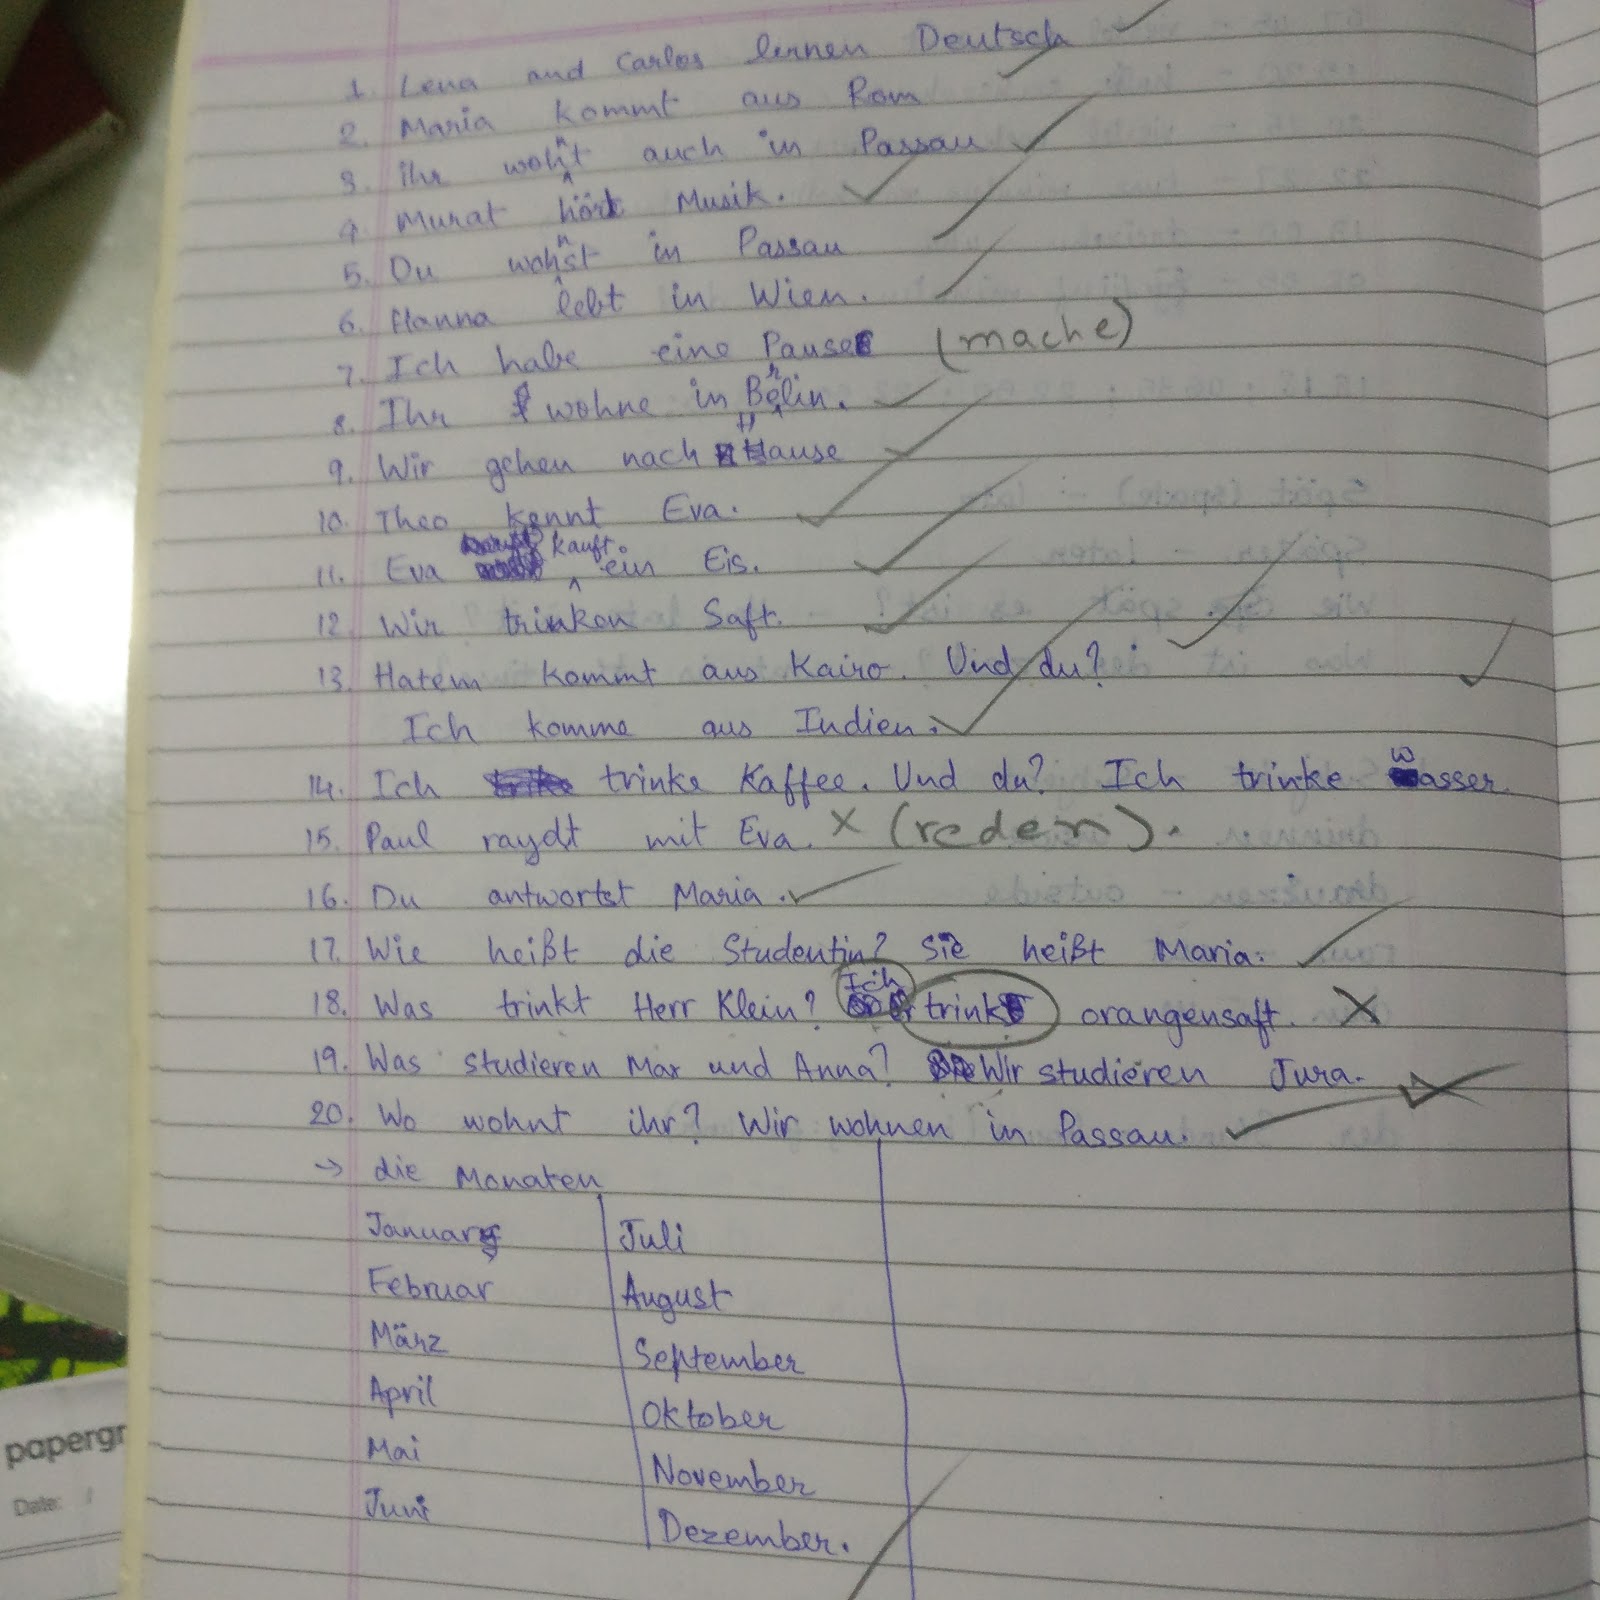 1. Lena and Carlos lernen Deutsch
2. Maria kommt aus Rom
3. ihr wohnt auch in Passau
4. Murat hört Musik.
5. Du wohnst in Passau
6. Hanna lebt in Wien.
7. Ich habe eine Pause (mache)
8. Ihr wohne in Berlin.
9. Wir gehen nach Hause
10. Theo kennt Eva.
11. Eva kauft ein Eis.
12. Wir trinken Saft.
13. Hatem kommt aus Kairo. Und du?
Ich komme aus Indien.
14. Ich trinke Kaffee. Und du? Ich trinke wasser.
15. Paul raydt mit Eva. X (reden).
16. Du antwortst Maria.
17. Wie heißt die Studentin? Sie heißt Maria.
18. Was trinkt Herr Klein? Ich trinkt orangensaft. X
19. Was studieren Max und Anna? Wir studieren Jura.
20. Wo wohnt ihr? Wir wohnen in Passau.
→ die Monaten
Januar Juli
Februar August
März September
April Oktober
Mai November
Juni Dezember.
papergr
Date: